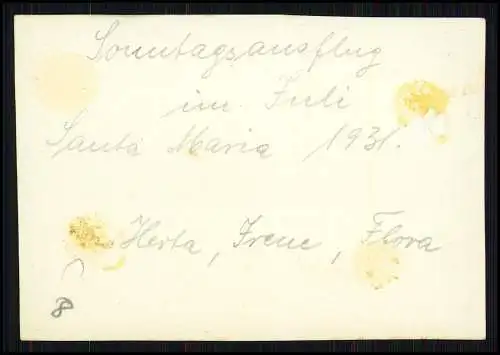 Sonntagsausflug
im Juli
Santa Maria 1931.
Herta, Irene, Flora
8